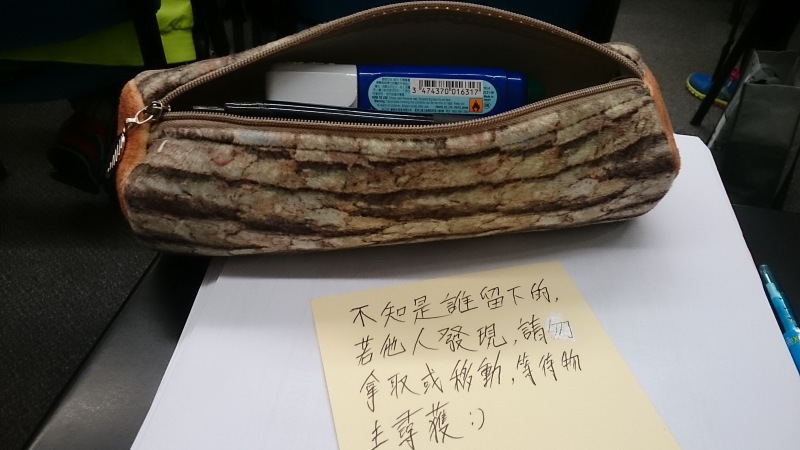 3 474370 016317
不知是誰留下的,
若他人發現,請勿
拿取或移動,等待物
主尋獲:)